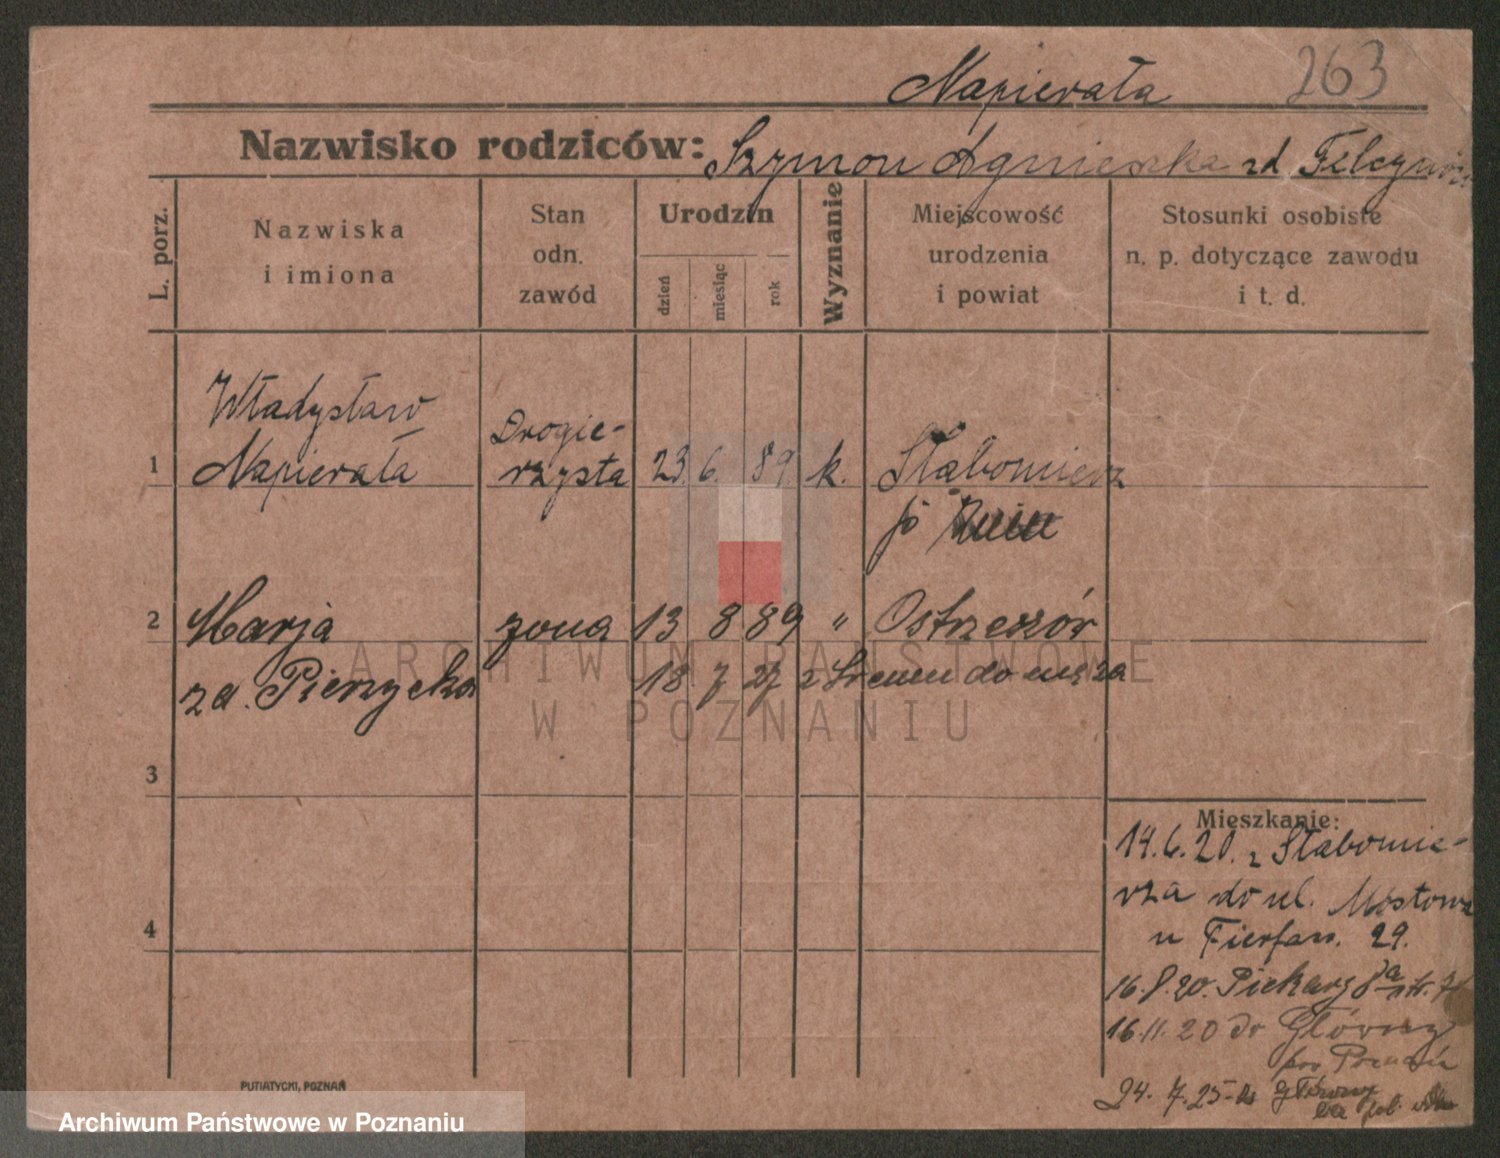 263
Napierała
Nazwisko rodziców: Szymon Agnieszka zd.
L. porz.
Nazwiska
i imiona
Stan
odn.
zawód
Urodzin
dzień
miesiąc
rok
Wyznanie
Miejscowość
urodzenia
i powiat
Stosunki osobiste
n. p. dotyczące zawodu
i t. d.
1
Władysław
Napierała
Drogie-
rzysta
23. 6. 89. k.
Słabomierz
2
Marja
zd. Pierzycka
żona
13 8 89 "
Ostrzeszów
18 7 27 z Śrem do męża
3
4
Mieszkanie:
14.6.20. z Słabomie-
rza do ul. Mostowa
u 29.
16.8.20. Piekary
16.11.20 do Główny
pow Poznań
24. 7. 25
PUTIATYCKI, POZNAŃ
ARCHIWUM PAŃSTWOWE
W POZNANIU
Archiwum Państwowe w Poznaniu